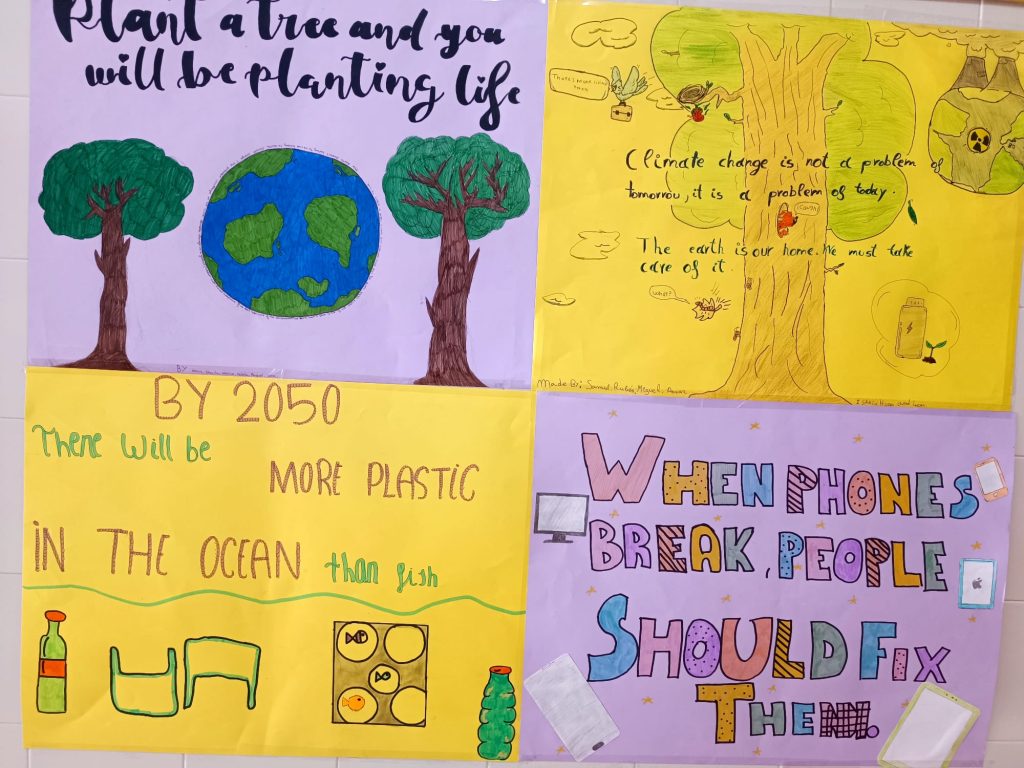 Plant a tree and you
will be planting life
BY
There's more living trees
Climate change is not a problem of
tomorrow, it is a problem of today.
Cough!
The earth is our home. We must take
care of it.
what?
Made By:
BY 2050
There will be
MORE PLASTIC
IN THE OCEAN than fish
WHEN PHONES
BREAK, PEOPLE
SHOULD FIX
THEM.